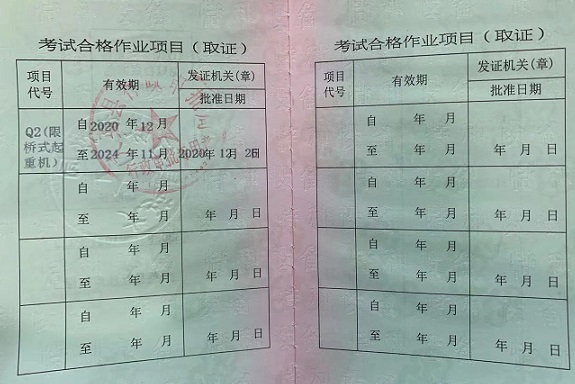 考试合格作业项目（取证）
项目代号 有效期 发证机关(章)
批准日期
Q2(限桥式起重机)
自2020 年12月
至2024 年11月 2020年 12月
自 年 月
至 年 月 年 月 日
自 年 月
至 年 月 年 月 日
自 年 月
至 年 月 年 月 日
考试合格作业项目（取证）
项目代号 有效期 发证机关(章)
批准日期
自 年 月
至 年 月 年 月 日
自 年 月
至 年 月 年 月 日
自 年 月
至 年 月 年 月 日
自 年 月
至 年 月 年 月 日